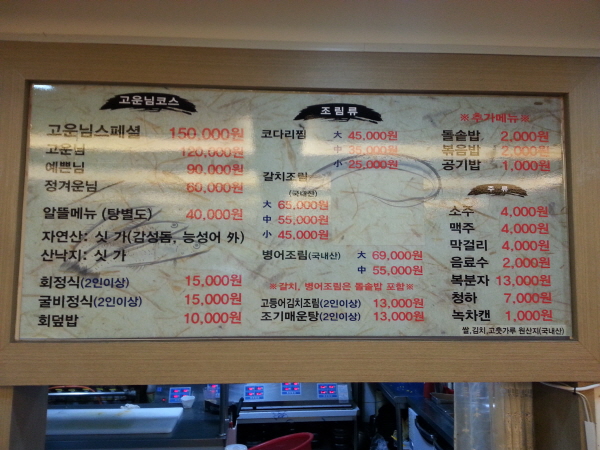 고운님코스
고운님스페셜 150,000원
고운님 120,000원
예쁜님 90,000원
정겨운님 60,000원
알뜰메뉴 (탕별도) 40,000원
자연산: 싯 가(감성돔, 능성어 外)
산낙지: 싯 가
회정식(2인이상) 15,000원
굴비정식(2인이상) 15,000원
회덮밥 10,000원
조림류
코다리찜 大 45,000원
中 35,000원
小 25,000원
갈치조림
(국내산)
大 65,000원
中 55,000원
小 45,000원
병어조림(국내산) 大 69,000원
中 55,000원
※갈치, 병어조림은 돌솥밥 포함※
고등어김치조림(2인이상) 13,000원
조기매운탕(2인이상) 13,000원
※추가메뉴※
돌솥밥 2,000원
볶음밥 2,000원
공기밥 1,000원
주 류
소주 4,000원
맥주 4,000원
막걸리 4,000원
음료수 2,000원
복분자 13,000원
청하 7,000원
녹차캔 1,000원
쌀,김치,고춧가루 원산지(국내산)